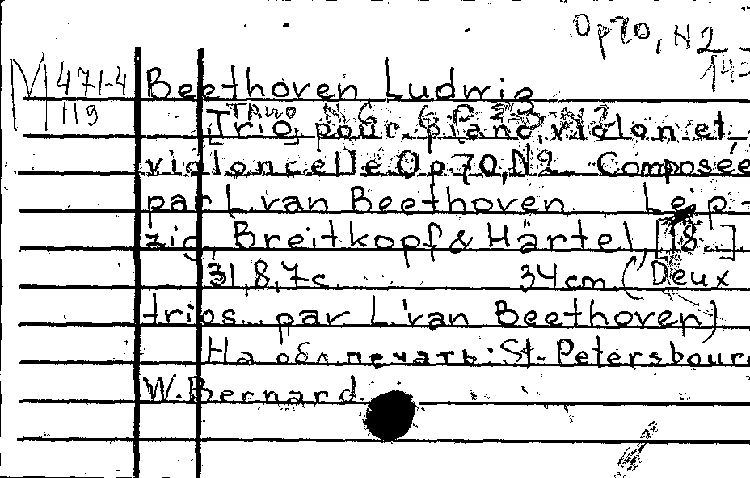 Op70, N2
M 471-4
119
Beethoven Ludwig
[Trio] pour piano, violon et
violoncelle Op70, N2. Composée
par L van Beethoven Leip-
zig, Breitkopf & Härtel, [18 ].
31, 8, 7 c. 34 cm. (Deux
trios par L van Beethoven)
На обл. печать: St-Petersbour
W. Bernard